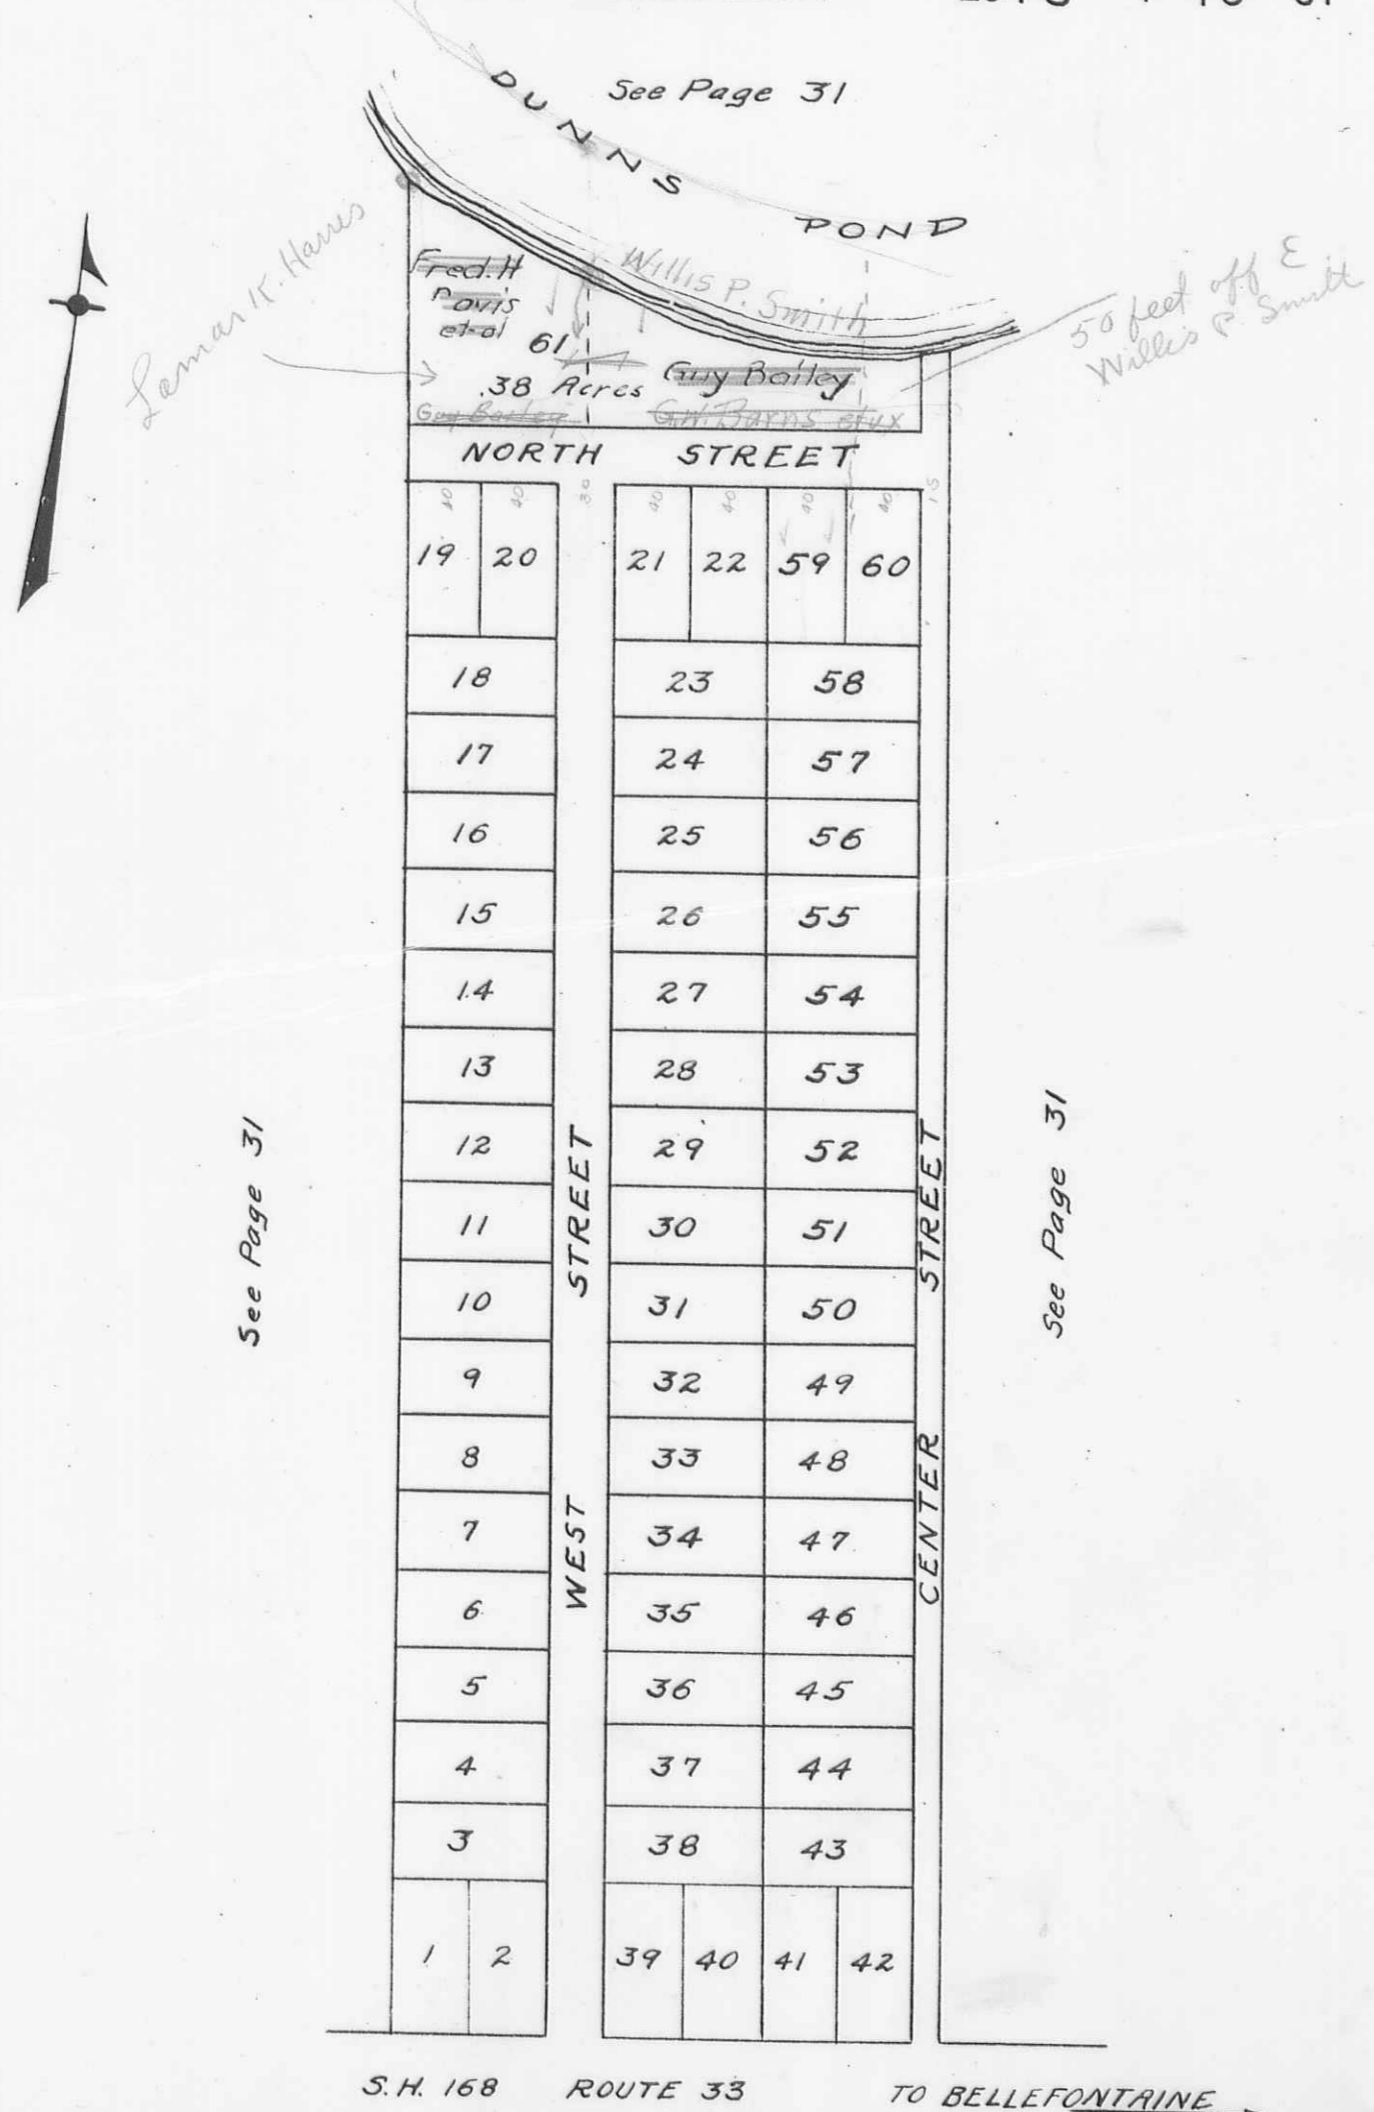 See Page 31
DUNNS POND
Lamar K. Harris
Fred. H
Davis
et-al
Willis P. Smith
50 feet off E
Willis P. Smith
61
.38 Acres
Guy Bailey
Guy Bailey
G.W. Barns etux
NORTH STREET
40 40 30 40 40 40 40 15
19 20 21 22 59 60
18 23 58
17 24 57
16 25 56
15 26 55
14 27 54
13 28 53
12 29 52
11 30 51
10 31 50
9 32 49
8 33 48
7 34 47
6 35 46
5 36 45
4 37 44
3 38 43
1 2 39 40 41 42
See Page 31
WEST STREET
CENTER STREET
See Page 31
S.H. 168 ROUTE 33 TO BELLEFONTAINE